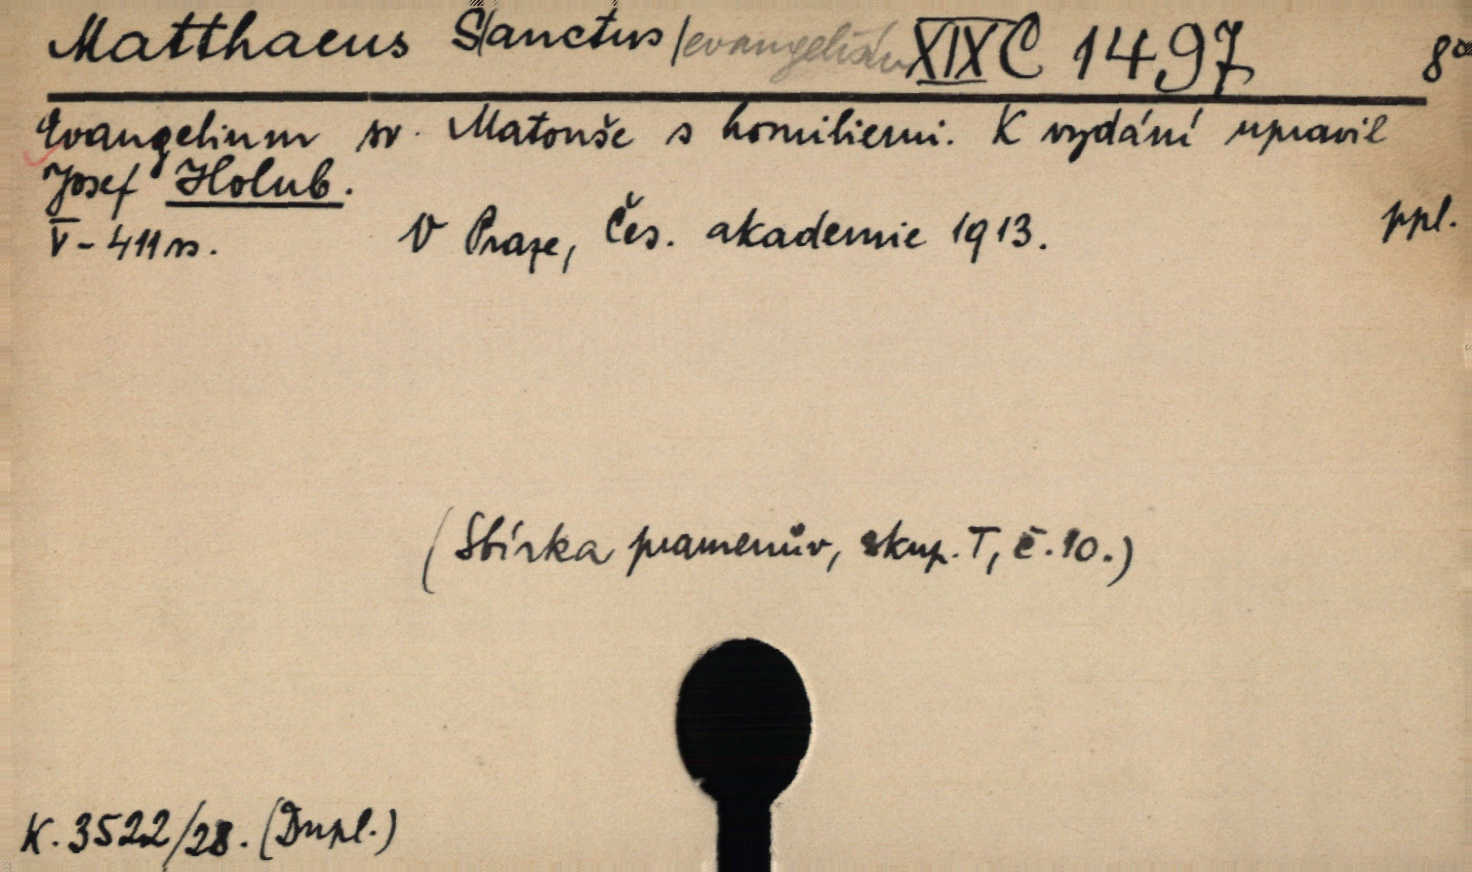 Matthaeus Sanctus /evangelista XIX C 1497 8°
Evangelium sv. Matouše s homiliemi. K vydání upravil
Josef Holub.
V-411 s. V Praze, Čes. akademie 1913. ppl.
(Sbírka pramenův, skup. I, č. 10.)
K. 3522/28. (Dupl.)